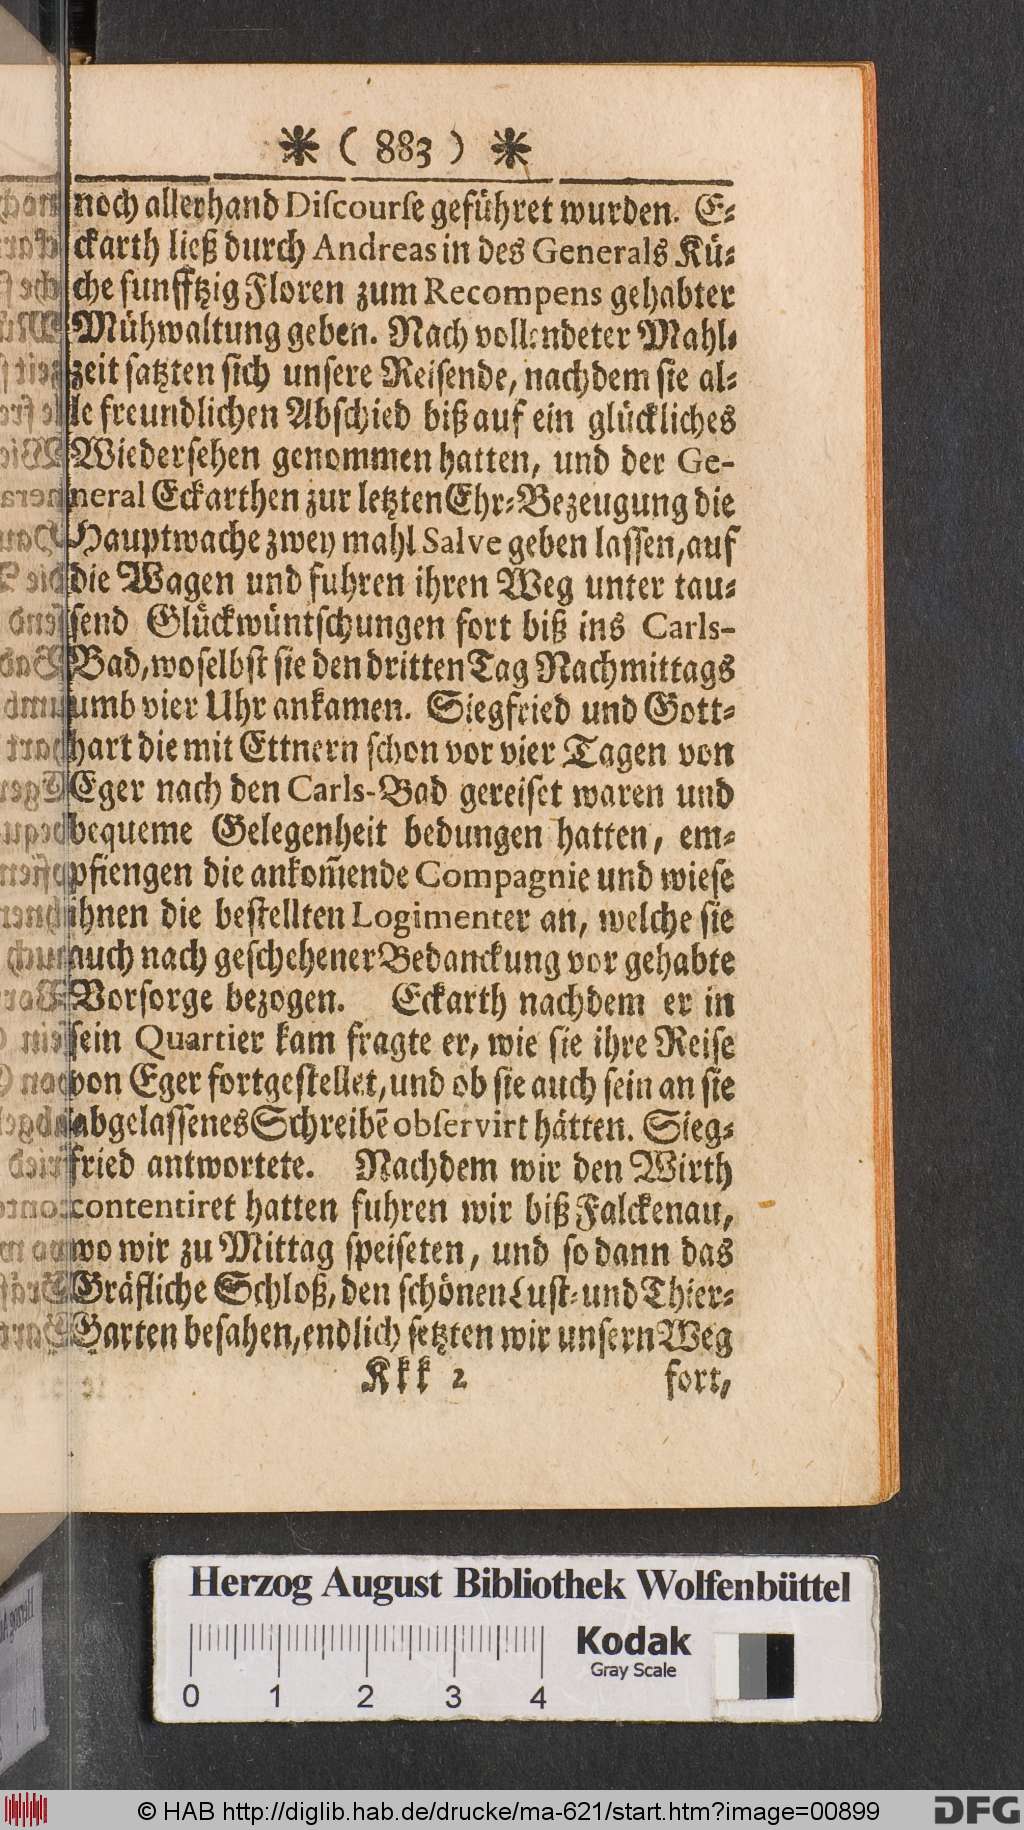 * ( 883 ) *
noch allerhand Discourse geführet wurden. E-
ckarth ließ durch Andreas in des Generals Kü-
che funfftzig Floren zum Recompens gehabter
Mühwaltung geben. Nach vollendeter Mahl-
zeit satzten sich unsere Reisende, nachdem sie al-
le freundlichen Abschied biß auf ein glückliches
Wiedersehen genommen hatten, und der Ge-
neral Eckarthen zur letzten Ehr-Bezeugung die
Hauptwache zwey mahl Salve geben lassen, auf
die Wagen und fuhren ihren Weg unter tau-
send Glückwüntschungen fort biß ins Carls-
Bad, woselbst sie den dritten Tag Nachmittags
umb vier Uhr ankamen. Siegfried und Gott-
hart die mit Ettnern schon vor vier Tagen von
Eger nach den Carls-Bad gereiset waren und
bequeme Gelegenheit bedungen hatten, em-
pfiengen die ankom̃ende Compagnie und wiese
ihnen die bestellten Logimenter an, welche sie
auch nach geschehener Bedanckung vor gehabte
Vorsorge bezogen. Eckarth nachdem er in
sein Quartier kam fragte er, wie sie ihre Reise
von Eger fortgestellet, und ob sie auch sein an sie
abgelassenes Schreibẽ observirt hätten. Sieg-
fried antwortete. Nachdem wir den Wirth
contentiret hatten fuhren wir biß Falckenau,
wo wir zu Mittag speiseten, und so dann das
Gräfliche Schloß, den schönen Lust- und Thier-
Garten besahen, endlich setzten wir unsern Weg
Kkk 2 fort,
Herzog August Bibliothek Wolfenbüttel
Kodak
Gray Scale
0 1 2 3 4
© HAB http://diglib.hab.de/drucke/ma-621/start.htm?image=00899
DFG